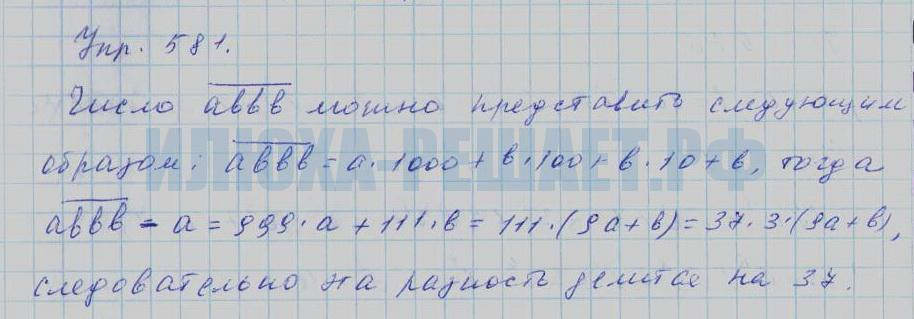 Упр. 581.
Число a̅b̅b̅b̅ можно представить следующим
образом: a̅b̅b̅b̅ = a·1000 + b·100 + b·10 + b, тогда
a̅b̅b̅b̅ - a = 999·a + 111·b = 111·(9a+b) = 37·3·(9a+b),
следовательно эта разность делится на 37.
ИЛЮХА-РЕШАЕТ.РФ